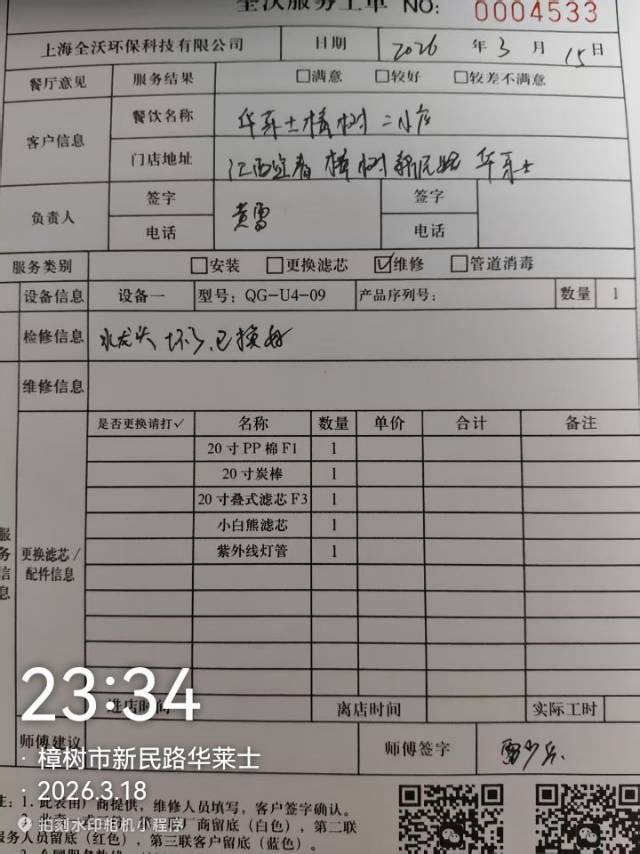 全沃服务工单 NO: 0004533
上海全沃环保科技有限公司 日期 2026 年 3 月 15 日
餐厅意见 服务结果 □满意 □较好 □较差不满意
客户信息 餐饮名称 华莱士樟树二小店
门店地址 江西宜春樟树新民路华莱士
负责人 签字 黄雷 签字
电话 电话
服务类别 □安装 □更换滤芯 ☑维修 □管道消毒
设备信息 设备一 型号: QG-U4-09 产品序列号: 数量 1
检修信息 水龙头坏了、已换好
维修信息
是否更换请打✓ 名称 数量 单价 合计 备注
20寸PP棉F1 1
20寸炭棒 1
20寸叠式滤芯F3 1
小白熊滤芯 1
紫外线灯管 1
服务信息 更换滤芯/配件信息
进店时间 离店时间 实际工时
师傅建议 师傅签字
23:34
· 樟树市新民路华莱士
· 2026.3.18
拍刻水印相机小程序
注: 1. 此表由厂商提供，维修人员填写，客户签字确认。
厂商留底（白色），第二联
服务人员留底（红色），第三联客户留底（蓝色）。